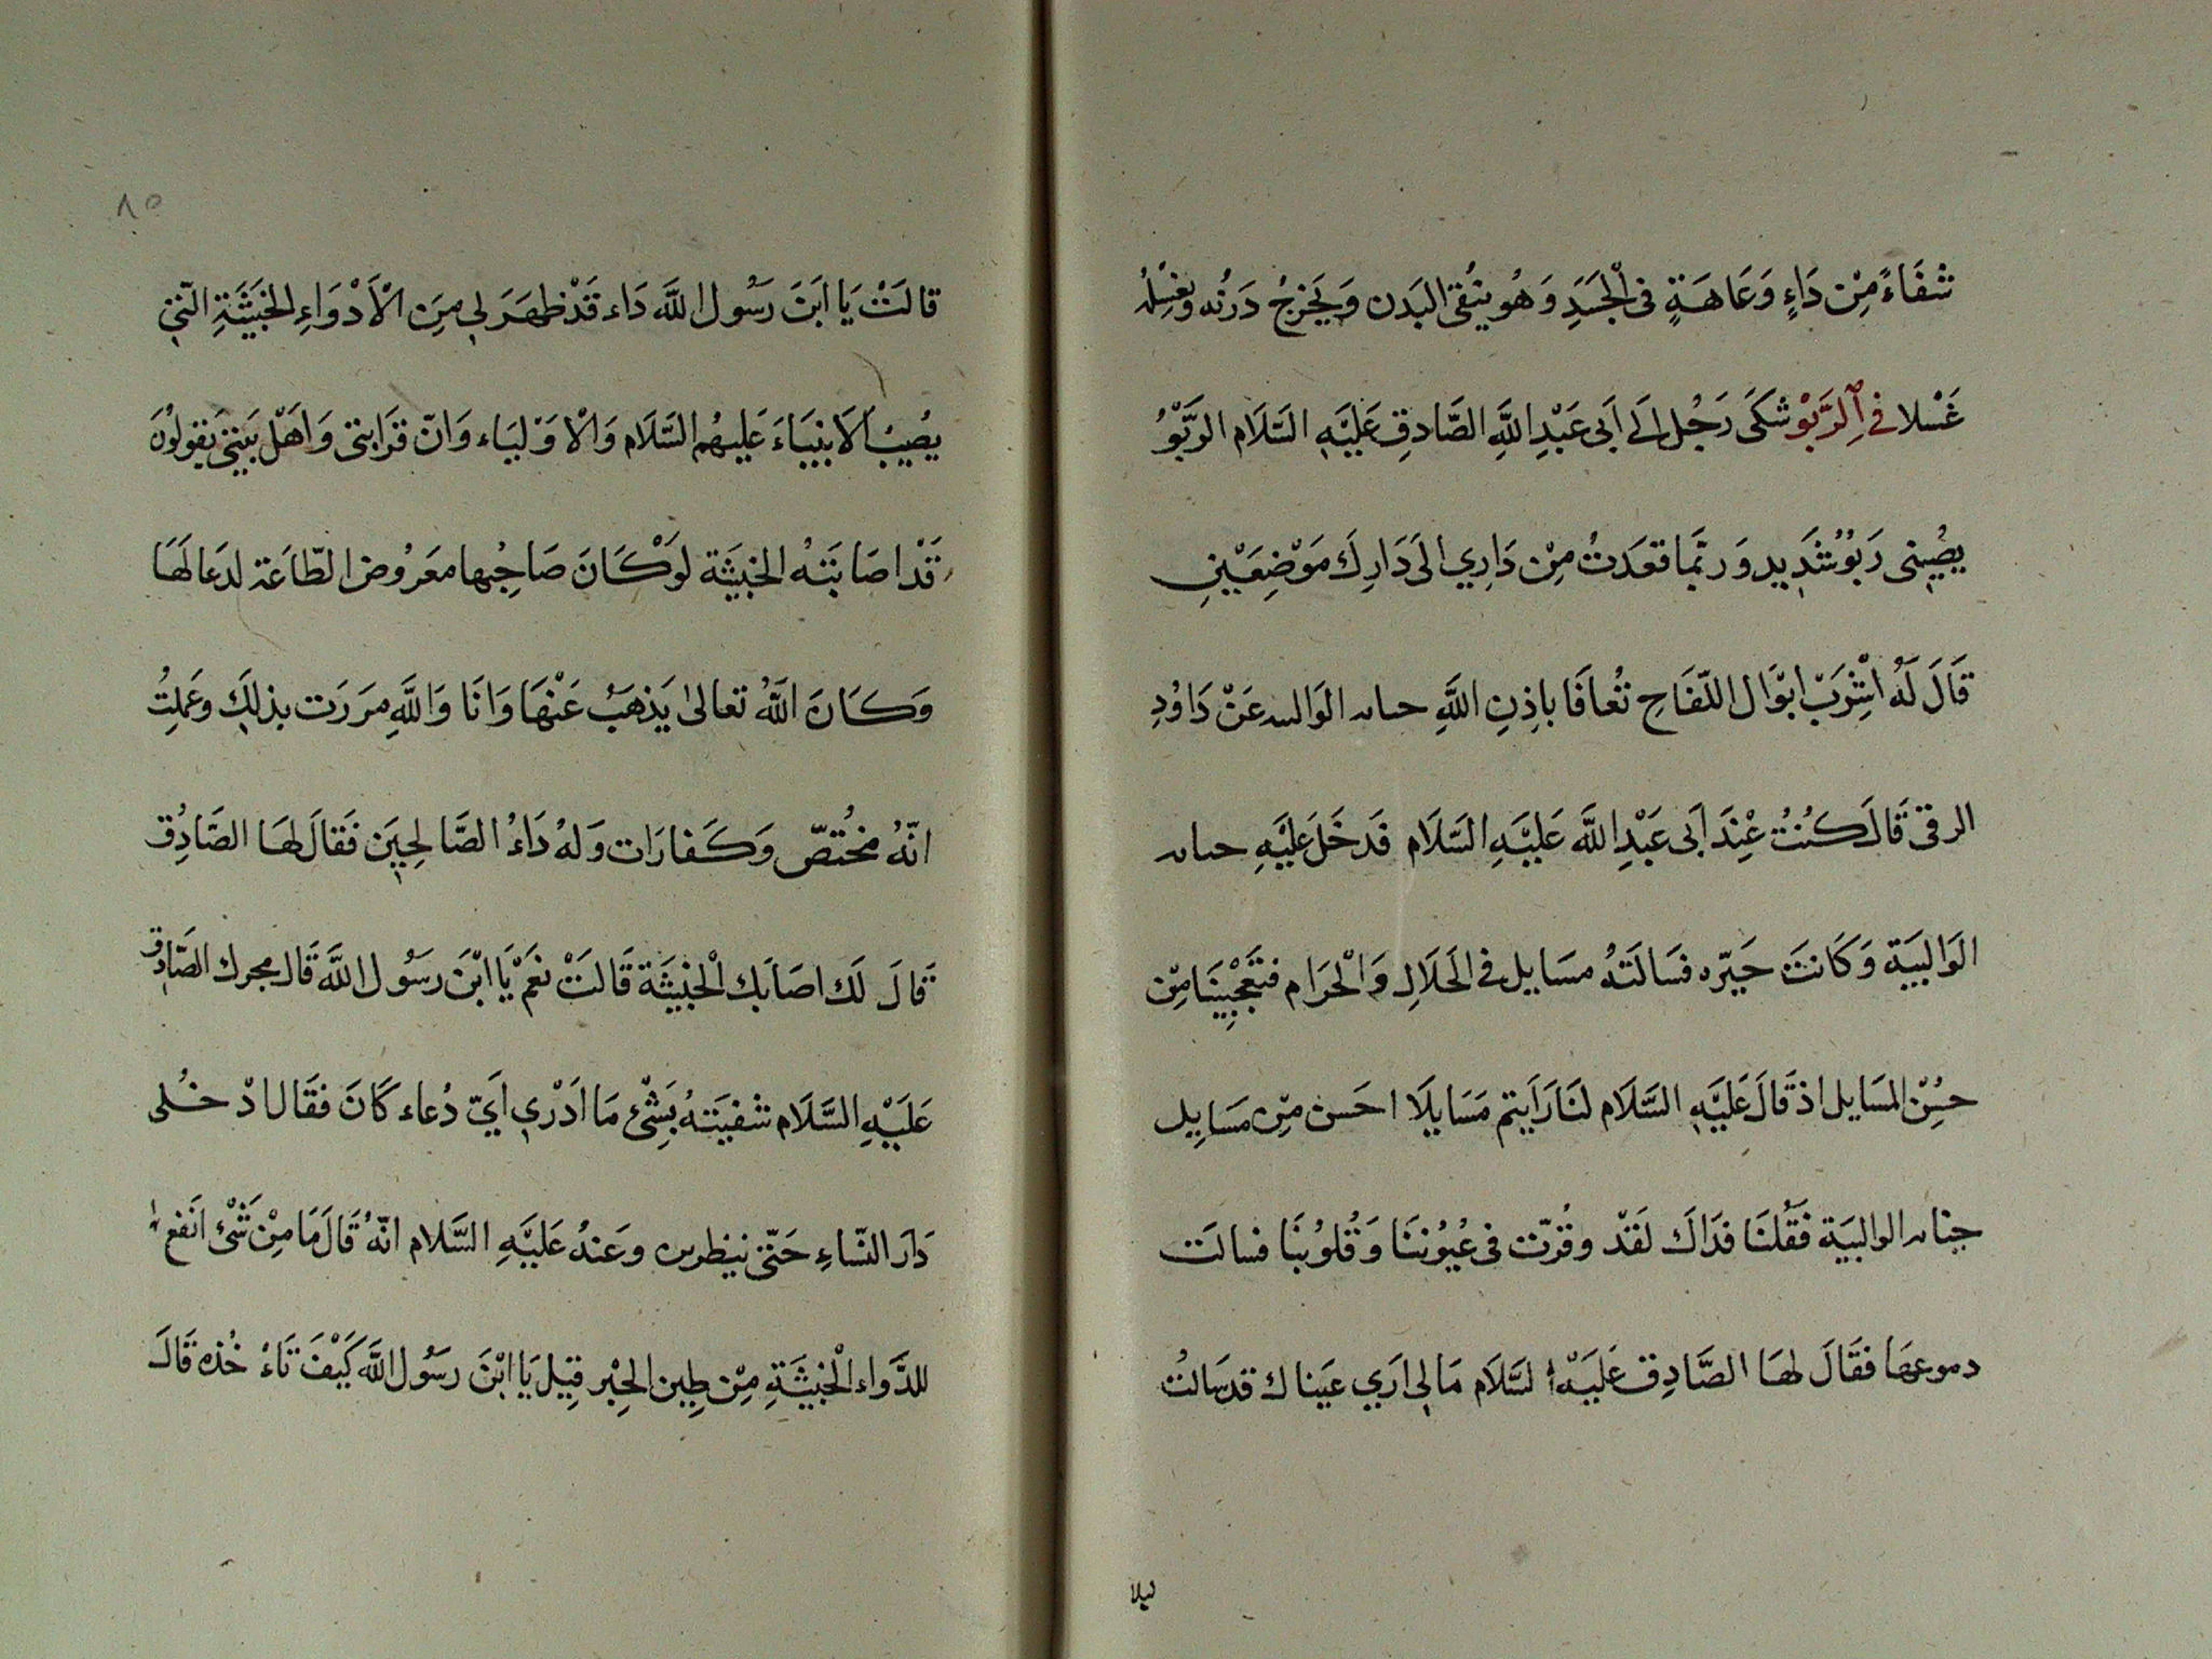 شَفَاءً مِنْ دَاءٍ وَعَاهَةٍ فى الْجَسَدِ وَهُو ينُقى البَدن وَيَخرِجُ دَرنُه وَيغسِلُهُ
غَسْلا فى الرَّبْوْ شكَى رَجُل الَى اَبى عَبْدِ اللَّهِ الصَّادِقِ عَليَهِ السَّلَام الرَّبْوُ
يصُيبنى رَبوُ شَديد وَربَّما قعَدتُ مِنْ دَارِي الَى دَارِكَ مَوْضِعَيْنِ
قَالَ لَهُ اشْرِبَ ابوْال اللّفَاحِ تُعافَا باِذِنِ اللَّهِ حبابه الوَالبيه عَنْ دَاوُدِ
الرقى قَالَ كُنتُ عِندَ اَبى عَبْدِ اللَّه عَليَهِ السَّلَام فَدخَلَ عَليَهِ حبابه
الوَالبيَة وَكَانتَ خيّره فسَالَتهُ مسَايل فى الحَلَالِ وَالْحَرَام فتعَجّبنَا مِنْ
حسُنِ المسَايل اذ قَالَ عَليَهِ السَّلَام لنَا رَاَيتم مَسَايلًا احَسن مِن مَسَايِل
حبابه الوالبيَة فَقُلنَا فدَاكَ لَقَدْ وقُرّت فى عُيوُننَا وَقُلوُبنَا فسالَت
دموعهَا فقَالَ لهَا الصَّادِق عَليَهْ السَّلَام مَالى اَرَي عيَناك قد سَالتُ
ليلا
٨٥
قالَتْ يَا ابَنَ رَسُول اللَّه دَاء قَدْ ظهَرَ لى مِنَ الْاَدْوَاءِ الخبَيثَةِ التّى
يصُيبُ الَانبيَاءَ عَليهمُ السَّلَام وَالْاوَليَاء وَانّ قرَابتى وَاَهْل بَيتىَ يَقولوُن
قَدْ اصَابَتهُ الخبيثَة لوَكَانَ صَاحِبُها مَعَرُوض الطّاعَة لدَعَا لَهَا
وَكَانَ اللَّهُ تعالىٰ يَذهَبُ عَنْهَا وَانَا وَاللَّهِ مرَرَت بذلِكَ وعَملِتُ
انّهُ مخُتصّ وَكَفارَات وَلهُ دَاءُ الصَّالحيِن فَقالَ لهَا الصَّادُِق
قَالَ لَك اصَابَك الْخبيثَة قَالَتْ نعَمْ يَا ابْنَ رسَُول اللَّه قَال محرك الصَّادِق
عَليَهِ السَّلَام شفيَتهُ بشَِئ مَا ادَرْي ايَّ دُعاء كَانَ فقَال ادْخلُى
دَار النّساءِ حَتّى ينظرن وعَنهُ عَليَهِ السَّلام انّهُ قَالَ مَا مِنْ شَْئ انَفع
للدَّوَاء الْخبيثَةِ مِنْ طِين الحِبْر قِيل يَا ابْنَ رسَُول اللَّه كَيْفَ تَاءُ خُذه قَالَ